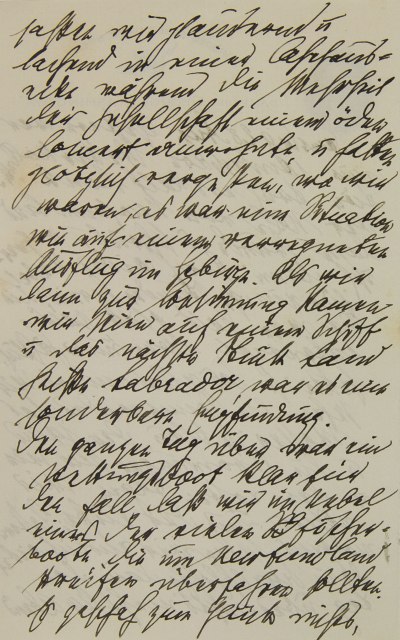 saßen wir plaudernd u
lachend in einer Caféhaus-
ecke während die Mehrheit
der Gesellschaft einem öden
Concert anwohnte, u hatten
plötzlich vergessen, wo wir
waren, es war eine Situation
wie auf einem verregneten
Ausflug im Gebirge. Als wir
dann zur Besinnung kamen
wir seien auf einem Schiff
u das nächste Stück Land
heiße Labrador war es eine
sonderbare Empfindung.
Den ganzen Tag über war ein
Rettungsboot klar für
den Fall, daß wir im Nebel
eines der vielen Schöpfer-
boote, die um Neufundland
streifen überfahren sollten.
Es geschah zum Glück nichts,